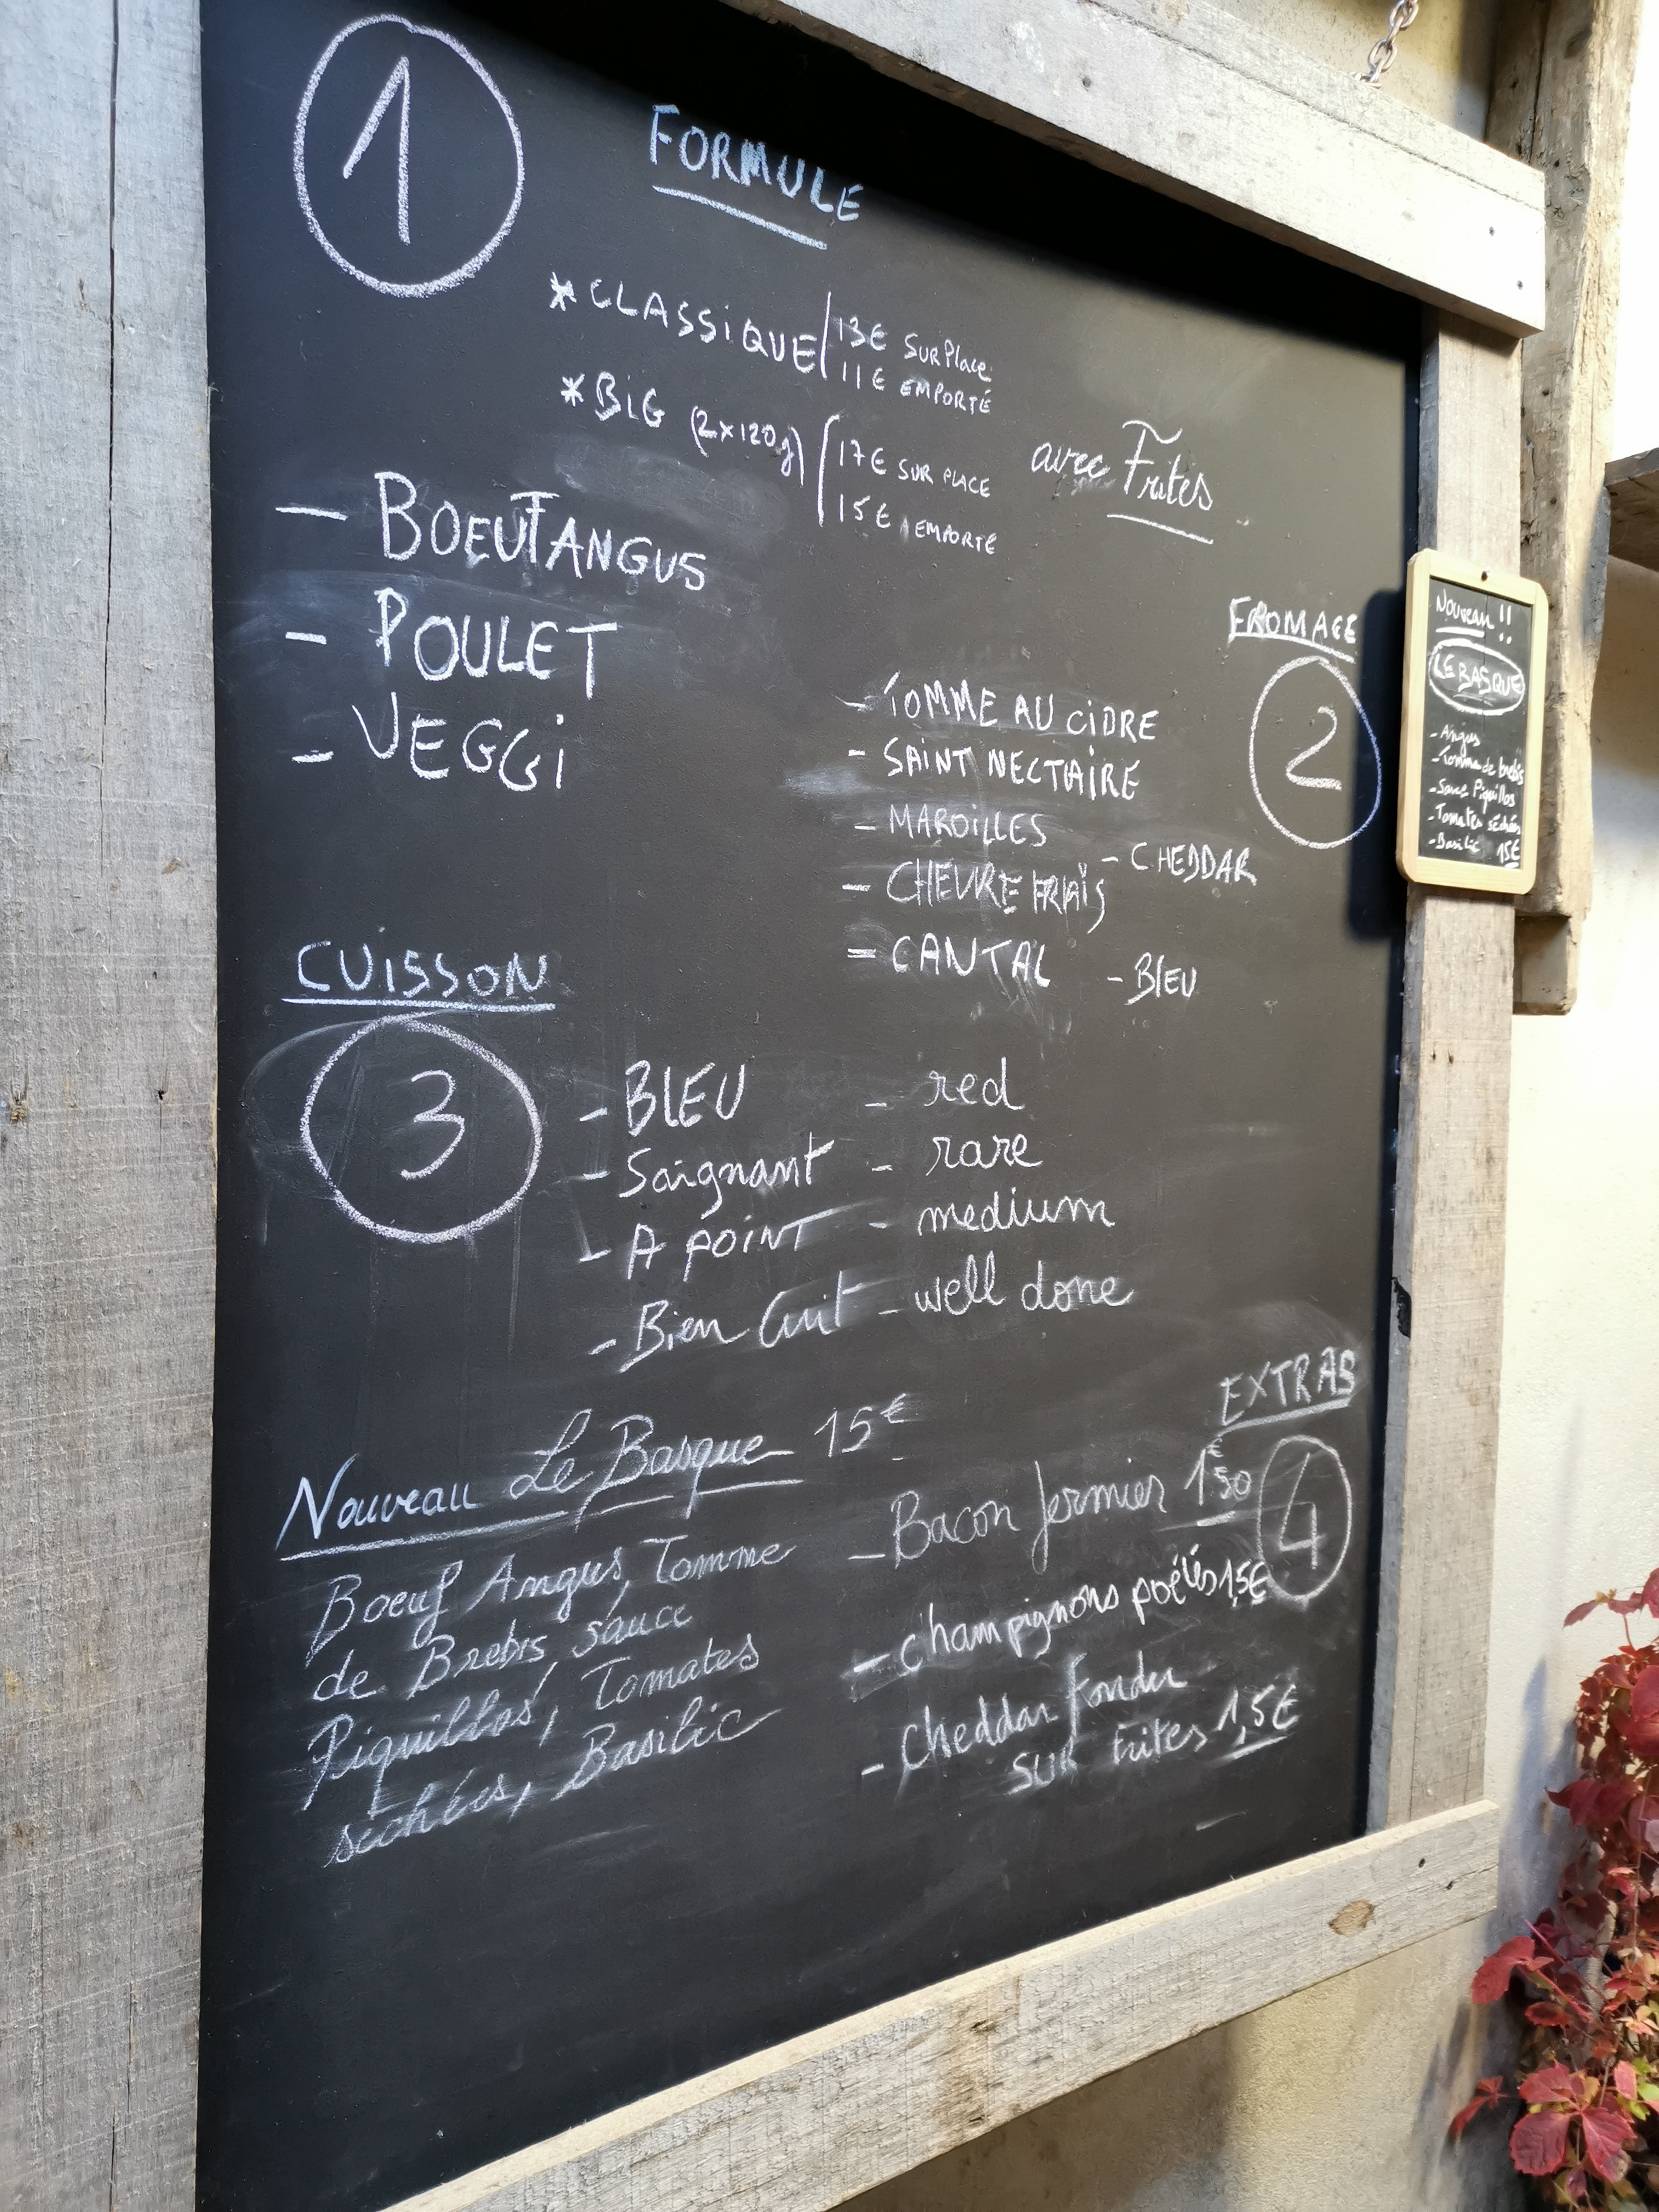 1
FORMULE
* CLASSIQUE
13€ SUR Place
11€ EMPORTÉ
* BIG (2x120g)
17€ SUR PLACE
15€ EMPORTÉ
avec Frites
- BOEUF ANGUS
- POULET
- VEGGI
FROMAGE
2
- TOMME AU CIDRE
- SAINT NECTAIRE
- MAROILLES
- CHEVRE FRAIS
- CHEDDAR
- CANTAL
- BLEU
CUISSON
3
- BLEU - red
- Saignant - rare
- A POINT - medium
- Bien Cuit - well done
Nouveau Le Basque 15€
Boeuf Angus, Tomme
de Brebis, sauce
Piquillos, Tomates
séchées, Basilic
EXTRAS
4
- Bacon fermier 1€50
- champignons poélés 1,5€
- cheddar fondu
sur frites 1,5€
Nouveau !!
LE BASQUE
- Angus
- Tomme de brebis
- Sauce Piquillos
- Tomates séchées
- Basilic 15€